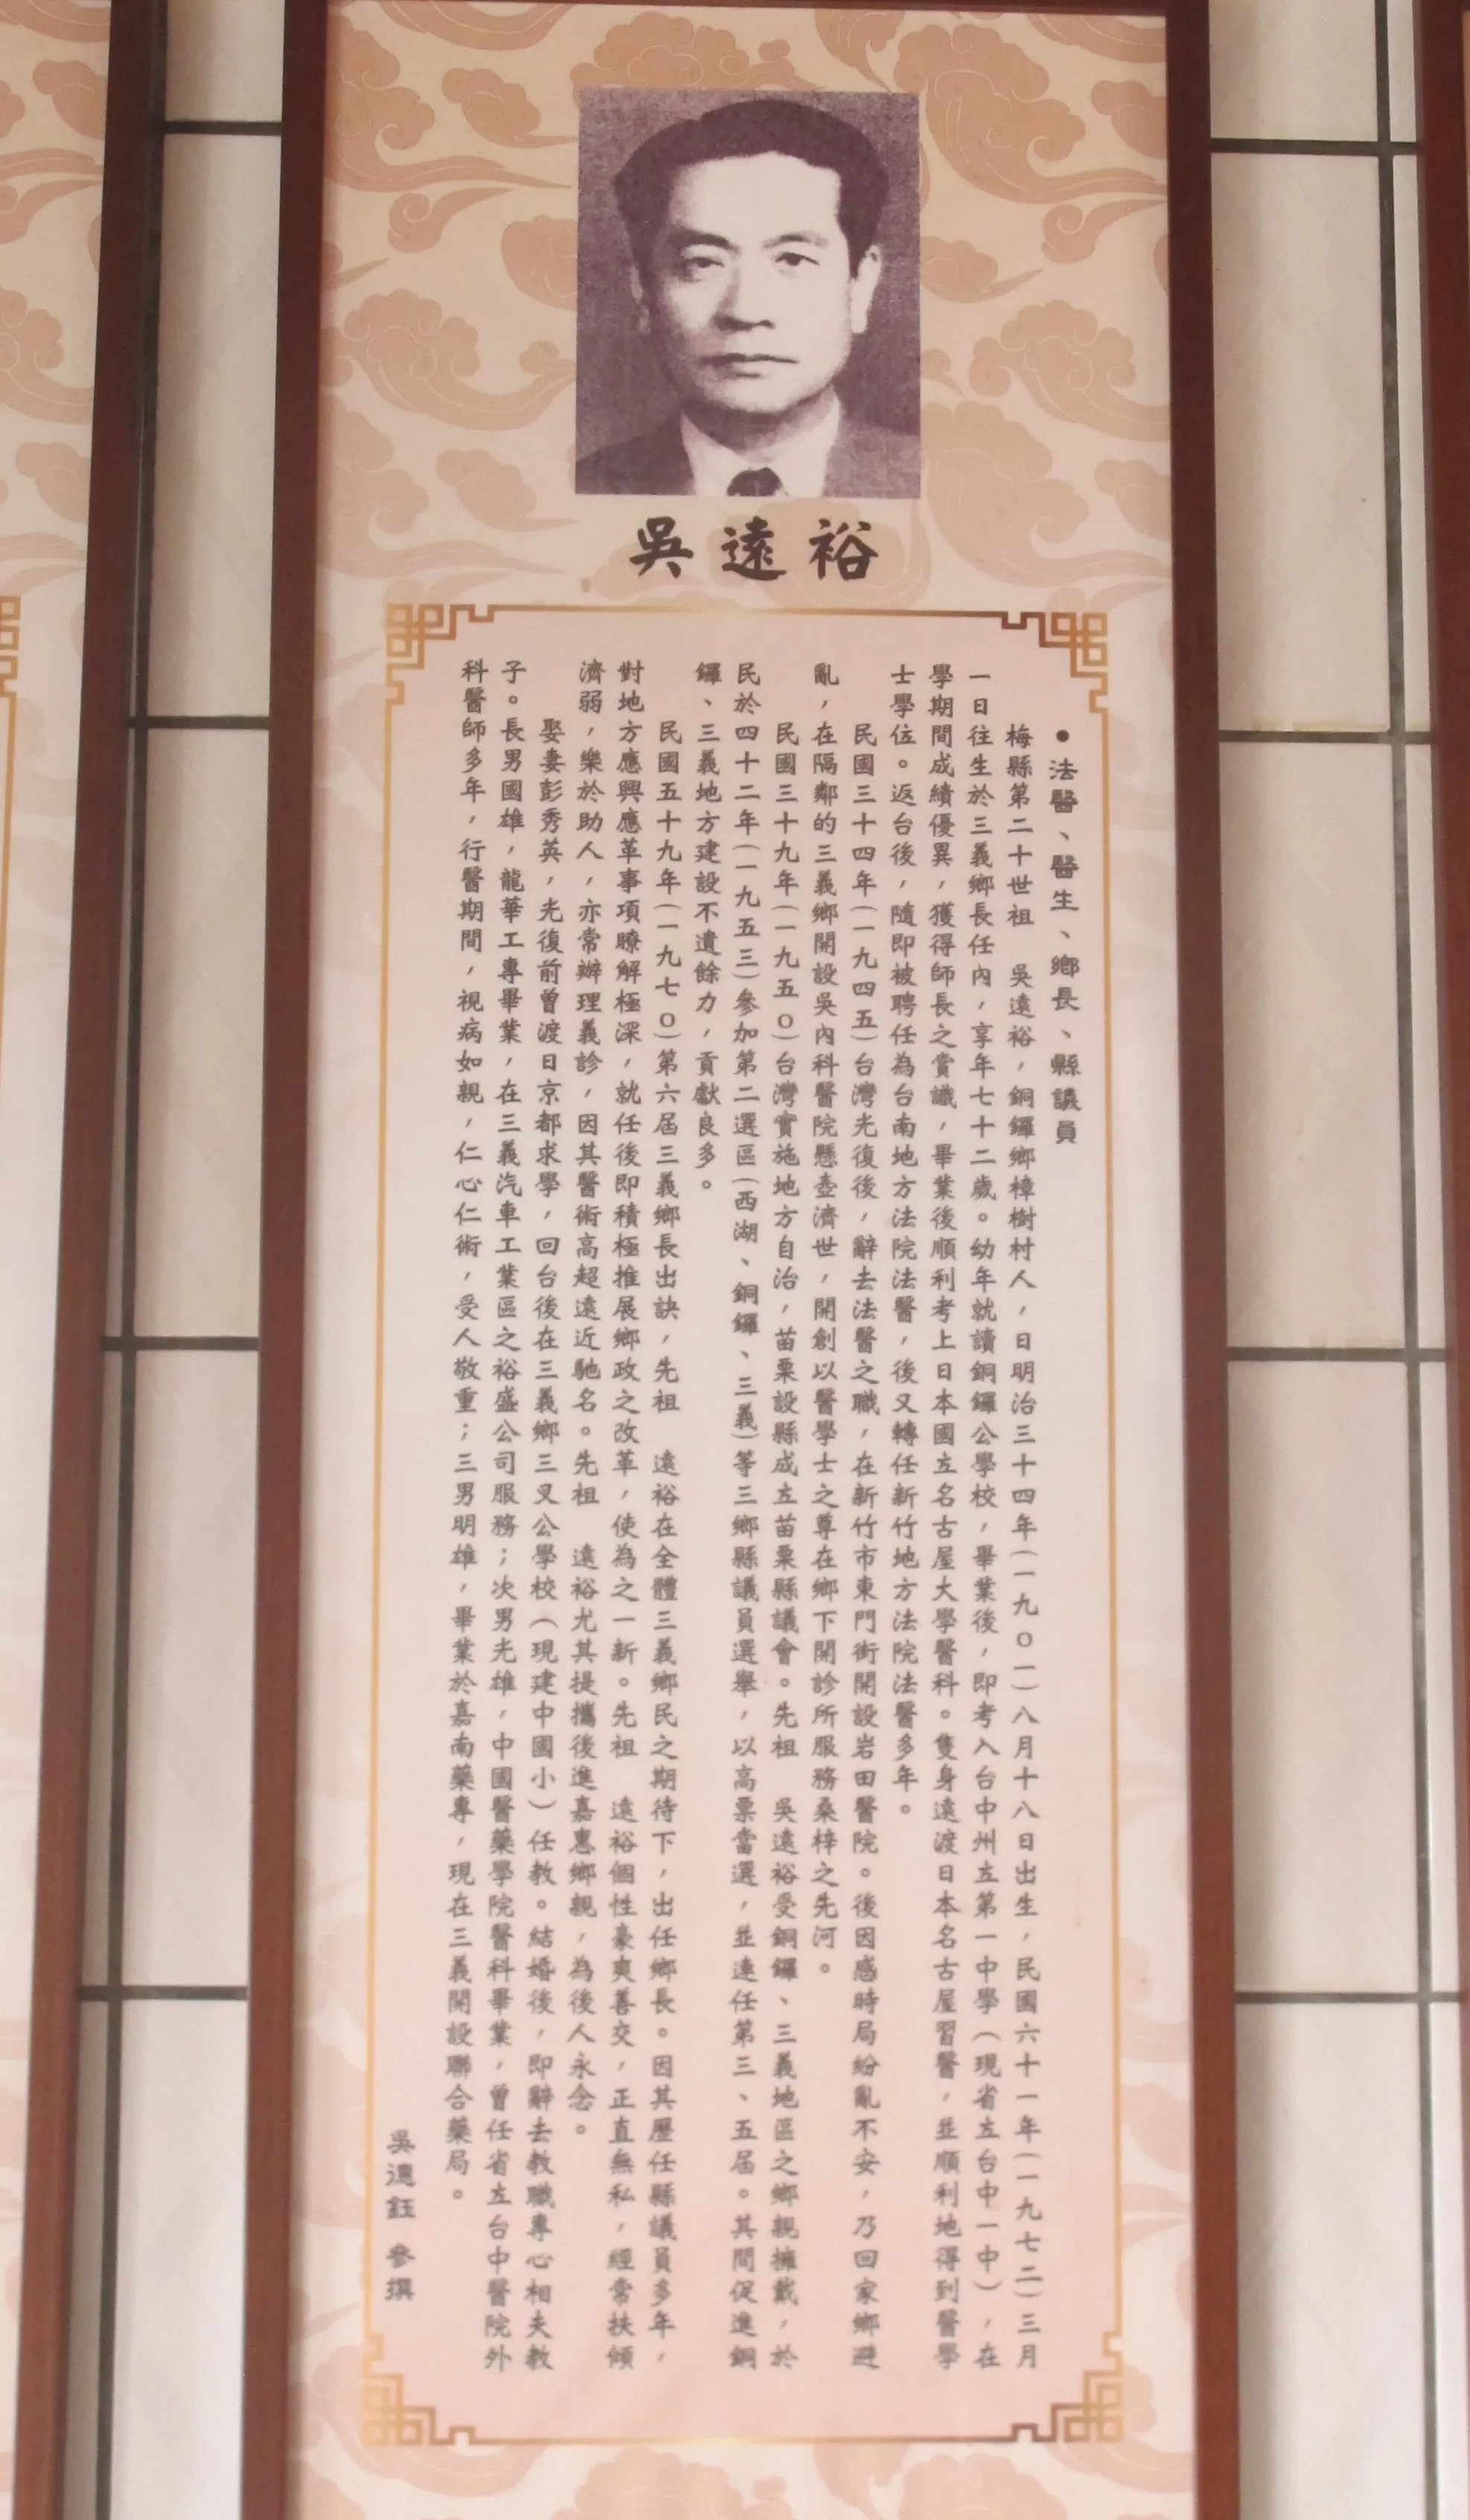 吳遠裕
●法醫、醫生、鄉長、縣議員
梅縣第二十世祖　吳遠裕，銅鑼鄉樟樹村人，日明治三十四年(一九0一)八月十八日出生，民國六十一年(一九七二)三月
一日往生於三義鄉長任內，享年七十二歲。幼年就讀銅鑼公學校，畢業後，即考入台中州立第一中學（現省立台中一中），在
學期間成績優異，獲得師長之賞識，畢業後順利考上日本國立名古屋大學醫科。隻身遠渡日本名古屋習醫，並順利地得到醫學
士學位。返台後，隨即被聘任為台南地方法院法醫，後又轉任新竹地方法院法醫多年。
民國三十四年(一九四五)台灣光復後，辭去法醫之職，在新竹市東門街開設岩田醫院。後因感時局紛亂不安，乃回家鄉避
亂，在隔鄰的三義鄉開設吳內科醫院懸壺濟世，開創以醫學士之尊在鄉下開診所服務桑梓之先河。
民國三十九年(一九五0)台灣實施地方自治，苗栗設縣成立苗栗縣議會。先祖　吳遠裕受銅鑼、三義地區之鄉親擁戴，於
民於四十二年(一九五三)參加第二選區(西湖、銅鑼、三義)等三鄉縣議員選舉，以高票當選，並連任第三、五屆。其間促進銅
鑼、三義地方建設不遺餘力，貢獻良多。
民國五十九年(一九七0)第六屆三義鄉長出訣，先祖　遠裕在全體三義鄉民之期待下，出任鄉長。因其歷任縣議員多年，
對地方應興應革事項瞭解極深，就任後即積極推展鄉政之改革，使為之一新。先祖　遠裕個性豪爽善交，正直無私，經常扶傾
濟弱，樂於助人，亦常辦理義診，因其醫術高超遠近馳名。先祖　遠裕尤其提攜後進嘉惠鄉親，為後人永念。
娶妻彭秀英，光復前曾渡日京都求學，回台後在三義鄉三叉公學校（現建中國小）任教。結婚後，即辭去教職專心相夫教
子。長男國雄，龍華工專畢業，在三義汽車工業區之裕盛公司服務；次男光雄，中國醫藥學院醫科畢業，曾任省立台中醫院外
科醫師多年，行醫期間，視病如親，仁心仁術，受人敬重；三男明雄，畢業於嘉南藥專，現在三義開設聯合藥局。
吳 鈺 參撰